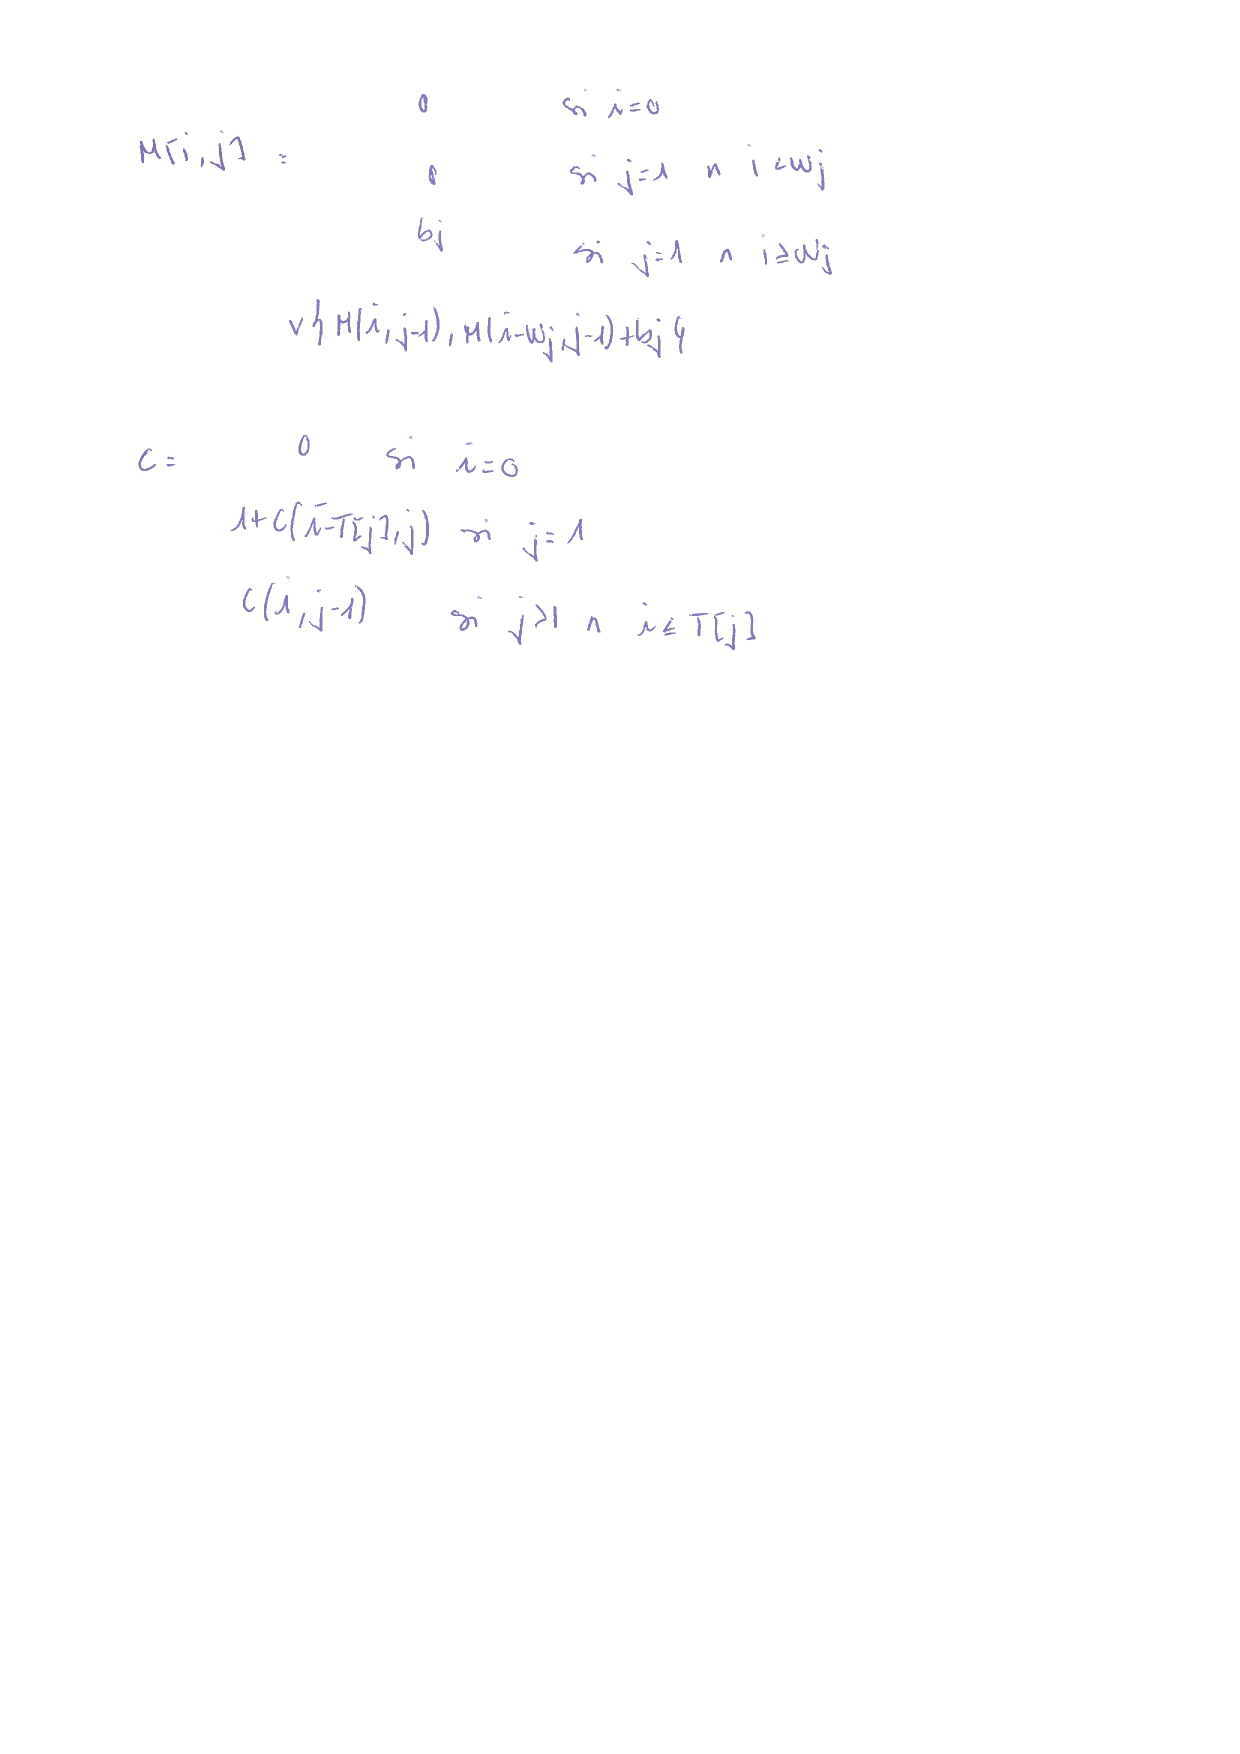 0 si i=0
M[i,j] =
0 si j=1 ∧ i<wj
bj si j=1 ∧ i≥wj
v{M(i,j-1), M(i-wj,j-1)+bj}
C= 0 si i=0
1+C(i-T[j],j) si j=1
C(i,j-1) si j>1 ∧ i≤T[j]